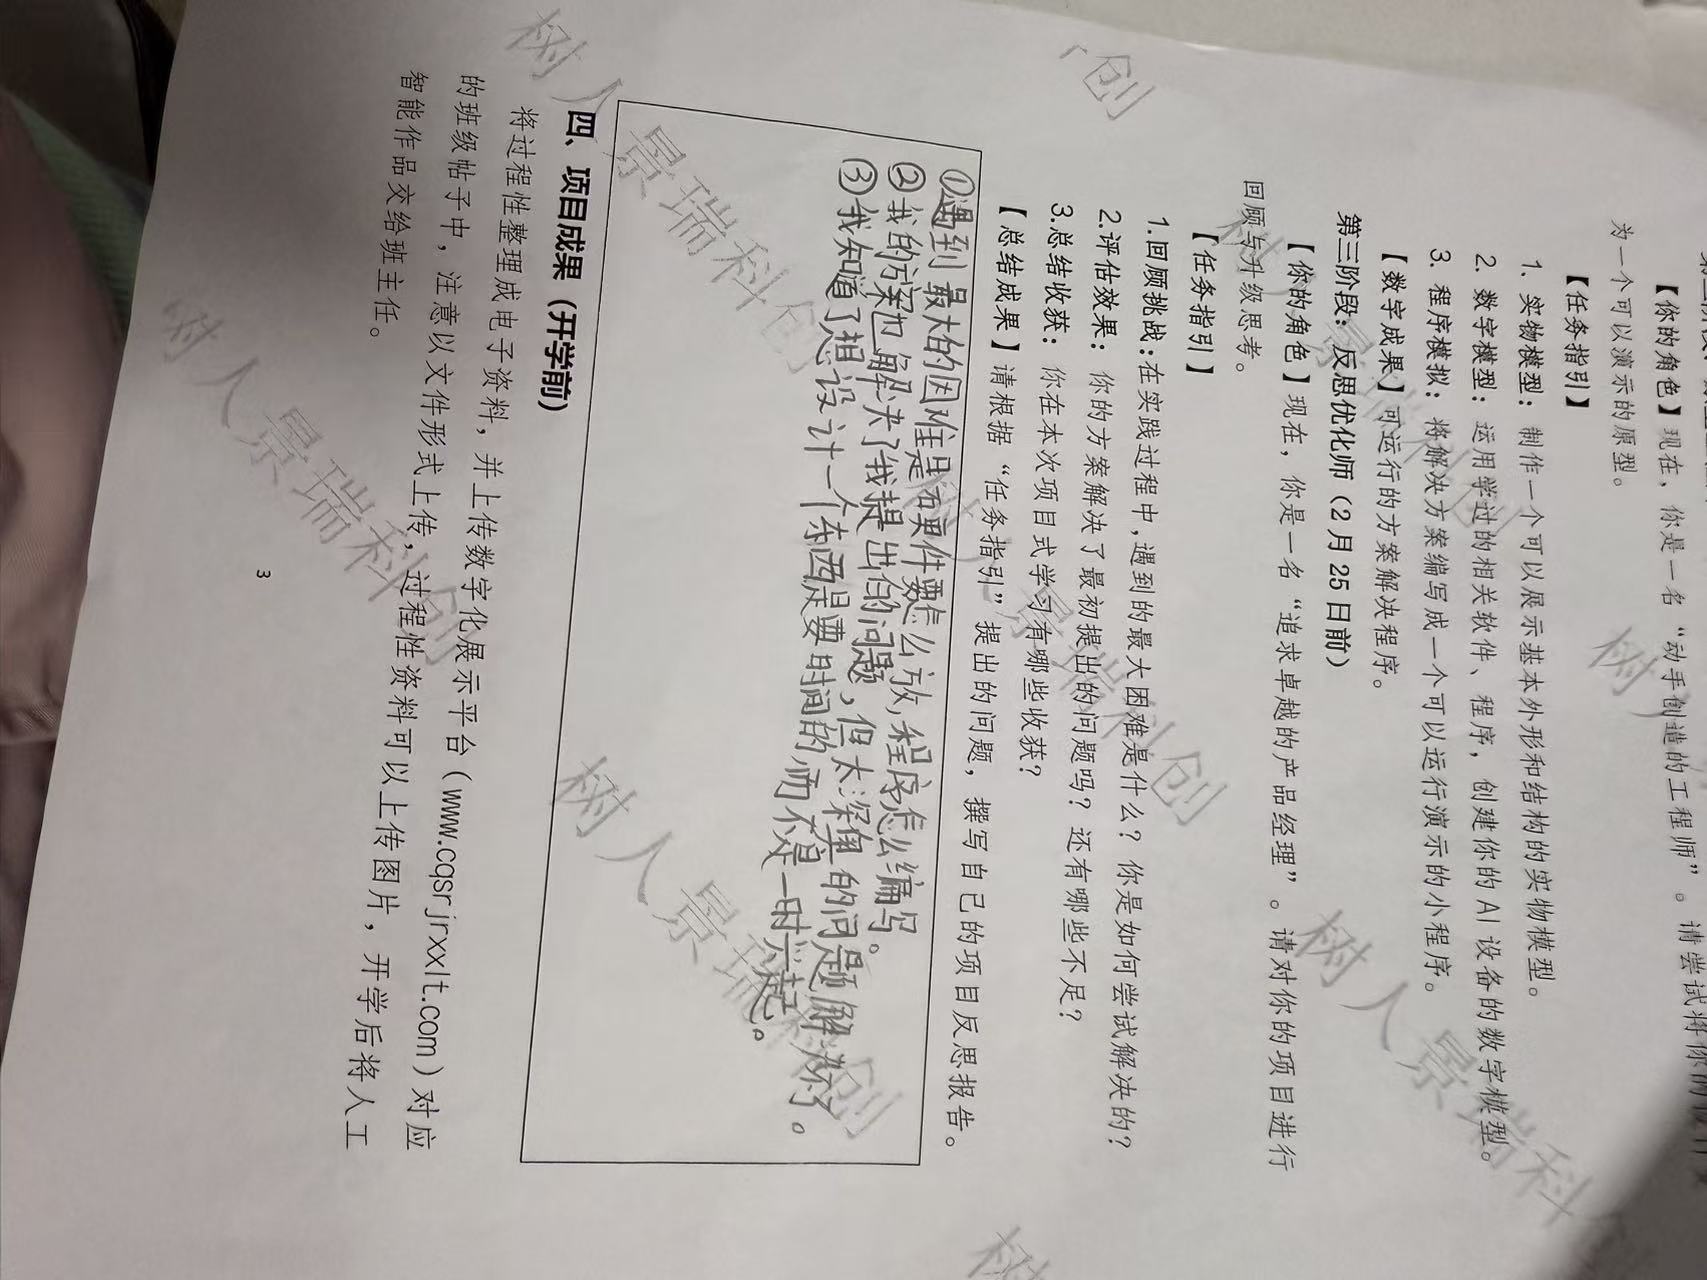 【你的角色】现在，你是一名“动手创造的工程师”。请尝试将你的
为一个可以演示的原型。
【任务指引】
1. 实物模型：制作一个可以展示基本外形和结构的实物模型。
2. 数字模型：运用学过的相关软件、程序，创建你的 AI 设备的数字模型。
3. 程序模拟：将解决方案编写成一个可以运行演示的小程序。
【数字成果】可运行的方案解决程序。
第三阶段：反思优化师（2 月 25 日前）
【你的角色】现在，你是一名“追求卓越的产品经理”。请对你的项目进行
回顾与升级思考。
【任务指引】
1.回顾挑战：在实践过程中，遇到的最大困难是什么？你是如何尝试解决的？
2.评估效果：你的方案解决了最初提出的问题吗？还有哪些不足？
3.总结收获：你在本次项目式学习有哪些收获？
【总结成果】请根据“任务指引”提出的问题，撰写自己的项目反思报告。
①遇到最大的困难是零件要怎么放，程序怎么编写。
②我的方案也解决了我提出的问题，但太深奥的问题解决不了。
③我知道了想设计一个东西是要时间的，而不是一时兴起。
四、项目成果（开学前）
将过程性整理成电子资料，并上传数字化展示平台（www.cqsrjrxxlt.com）对应
的班级帖子中，注意以文件形式上传，过程性资料可以上传图片，开学后将人工
智能作品交给班主任。
3
树人景瑞科创
树人景瑞科创
树人景瑞科创
树人景瑞科创
树人景瑞科